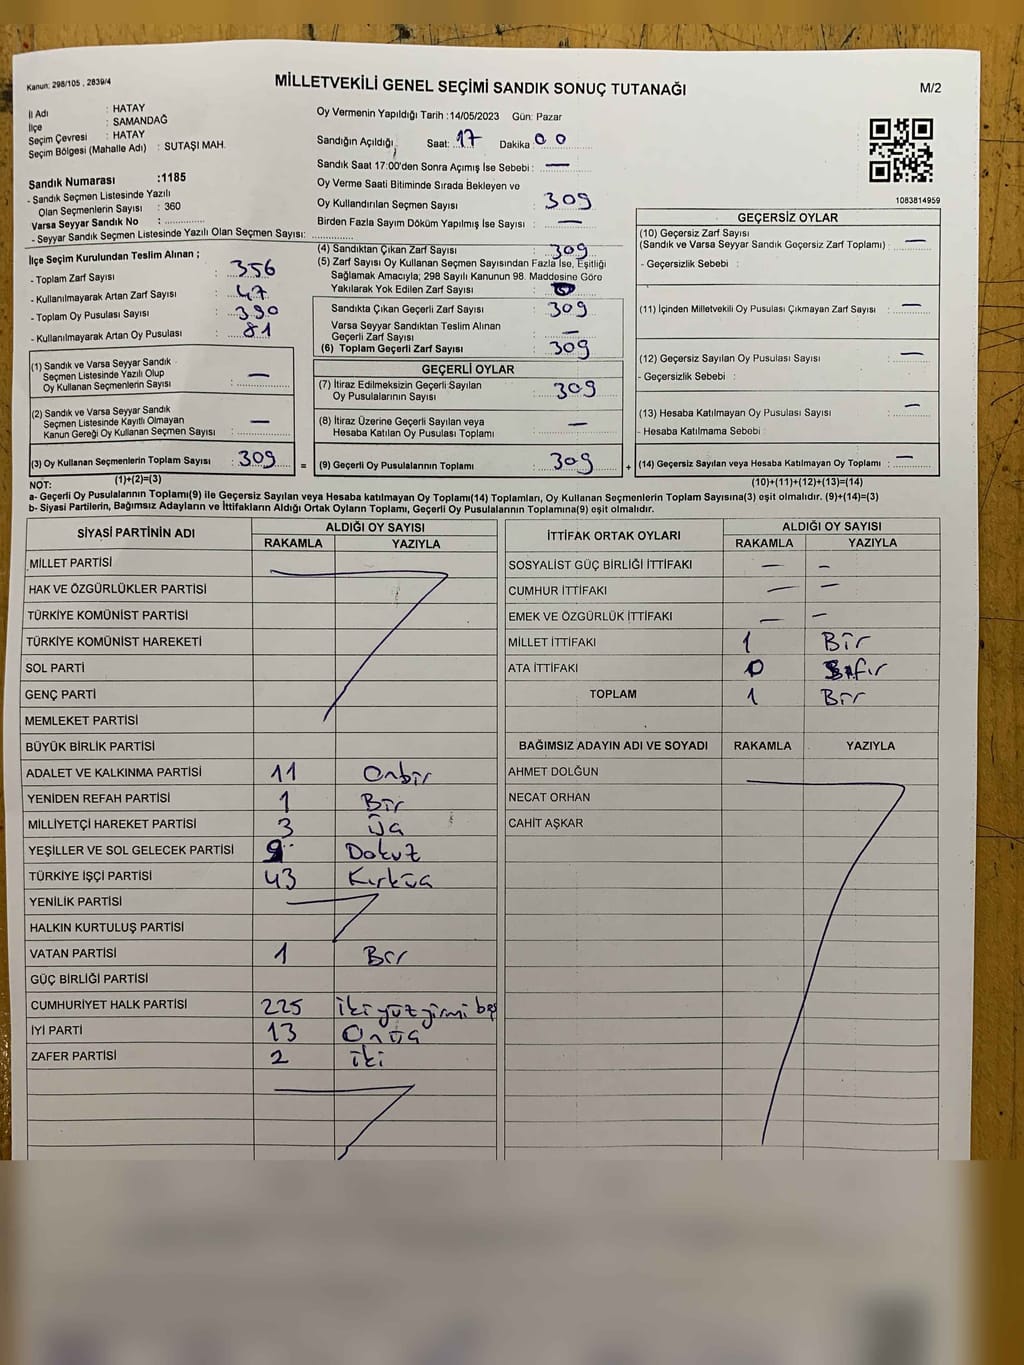 Kanun: 298/105 , 2839/4
MİLLETVEKİLİ GENEL SEÇİMİ SANDIK SONUÇ TUTANAĞI
M/2
İl Adı : HATAY
İlçe : SAMANDAĞ
Seçim Çevresi : HATAY
Seçim Bölgesi (Mahalle Adı) : SUTAŞI MAH.
Sandık Numarası :1185
- Sandık Seçmen Listesinde Yazılı
Olan Seçmenlerin Sayısı : 360
Varsa Seyyar Sandık No :
- Seyyar Sandık Seçmen Listesinde Yazılı Olan Seçmen Sayısı:
İlçe Seçim Kurulundan Teslim Alınan ;
- Toplam Zarf Sayısı : 356
- Kullanılmayarak Artan Zarf Sayısı : 47
- Toplam Oy Pusulası Sayısı : 390
- Kullanılmayarak Artan Oy Pusulası : 81
(1) Sandık ve Varsa Seyyar Sandık
Seçmen Listesinde Yazılı Olup
Oy Kullanan Seçmenlerin Sayısı : —
(2) Sandık ve Varsa Seyyar Sandık
Seçmen Listesinde Kayıtlı Olmayan
Kanun Gereği Oy Kullanan Seçmen Sayısı : —
(3) Oy Kullanan Seçmenlerin Toplam Sayısı : 309 =
(1)+(2)=(3)
Oy Vermenin Yapıldığı Tarih :14/05/2023 Gün: Pazar
Sandığın Açıldığı Saat: 17 Dakika 00
Sandık Saat 17:00'den Sonra Açımış İse Sebebi : —
Oy Verme Saati Bitiminde Sırada Bekleyen ve
Oy Kullandırılan Seçmen Sayısı : 309
Birden Fazla Sayım Döküm Yapılmış İse Sayısı : —
(4) Sandıktan Çıkan Zarf Sayısı : 309
(5) Zarf Sayısı Oy Kullanan Seçmen Sayısından Fazla İse, Eşitliği
Sağlamak Amacıyla; 298 Sayılı Kanunun 98. Maddesine Göre
Yakılarak Yok Edilen Zarf Sayısı :
Sandıkta Çıkan Geçerli Zarf Sayısı : 309
Varsa Seyyar Sandıktan Teslim Alınan
Geçerli Zarf Sayısı : —
(6) Toplam Geçerli Zarf Sayısı : 309
GEÇERLİ OYLAR
(7) İtiraz Edilmeksizin Geçerli Sayılan
Oy Pusulalarının Sayısı : 309
(8) İtiraz Üzerine Geçerli Sayılan veya
Hesaba Katılan Oy Pusulası Toplamı : —
(9) Geçerli Oy Pusulalarının Toplamı : 309 +
1083814959
GEÇERSİZ OYLAR
(10) Geçersiz Zarf Sayısı
(Sandık ve Varsa Seyyar Sandık Geçersiz Zarf Toplamı) : —
- Geçersizlik Sebebi :
(11) İçinden Milletvekili Oy Pusulası Çıkmayan Zarf Sayısı : —
(12) Geçersiz Sayılan Oy Pusulası Sayısı : —
- Geçersizlik Sebebi :
(13) Hesaba Katılmayan Oy Pusulası Sayısı : —
- Hesaba Katılmama Sebebi :
(14) Geçersiz Sayılan veya Hesaba Katılmayan Oy Toplamı : —
(10)+(11)+(12)+(13)=(14)
NOT:
a- Geçerli Oy Pusulalarının Toplamı(9) ile Geçersiz Sayılan veya Hesaba katılmayan Oy Toplamı(14) Toplamları, Oy Kullanan Seçmenlerin Toplam Sayısına(3) eşit olmalıdır. (9)+(14)=(3)
b- Siyasi Partilerin, Bağımsız Adayların ve İttifakların Aldığı Ortak Oyların Toplamı, Geçerli Oy Pusulalarının Toplamına(9) eşit olmalıdır.
SİYASİ PARTİNİN ADI ALDIĞI OY SAYISI
RAKAMLA YAZIYLA
MİLLET PARTİSİ
HAK VE ÖZGÜRLÜKLER PARTİSİ
TÜRKİYE KOMÜNİST PARTİSİ
TÜRKİYE KOMÜNİST HAREKETİ
SOL PARTİ
GENÇ PARTİ
MEMLEKET PARTİSİ
BÜYÜK BİRLİK PARTİSİ
ADALET VE KALKINMA PARTİSİ 11 Onbir
YENİDEN REFAH PARTİSİ 1 Bir
MİLLİYETÇİ HAREKET PARTİSİ 3 Üç
YEŞİLLER VE SOL GELECEK PARTİSİ 9 Dokuz
TÜRKİYE İŞÇİ PARTİSİ 43 Kırküç
YENİLİK PARTİSİ
HALKIN KURTULUŞ PARTİSİ
VATAN PARTİSİ 1 Bir
GÜÇ BİRLİĞİ PARTİSİ
CUMHURİYET HALK PARTİSİ 225 ikiyüzyirmi beş
İYİ PARTİ 13 Onüç
ZAFER PARTİSİ 2 iki
İTTİFAK ORTAK OYLARI ALDIĞI OY SAYISI
RAKAMLA YAZIYLA
SOSYALİST GÜÇ BİRLİĞİ İTTİFAKI — —
CUMHUR İTTİFAKI — —
EMEK VE ÖZGÜRLÜK İTTİFAKI — —
MİLLET İTTİFAKI 1 Bir
ATA İTTİFAKI 0 Sıfır
TOPLAM 1 Bir
BAĞIMSIZ ADAYIN ADI VE SOYADI RAKAMLA YAZIYLA
AHMET DOLĞUN
NECAT ORHAN
CAHİT AŞKAR